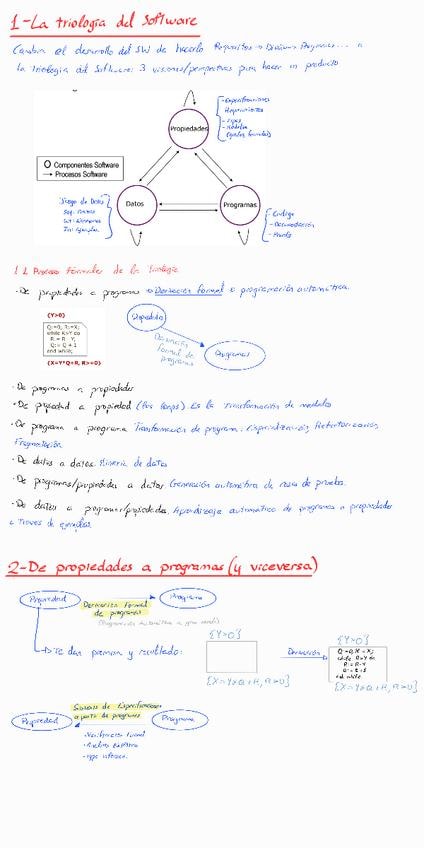 1-La triología del Software
Cambia el desarrollo del SW de hacerlo Requisitos → Diseño → Programas... a
la triología del Software: 3 visiones/perspectivas para hacer un producto
Propiedades
-Especificaciones
Requerimientos
-Tipos
-Modelos
O Componentes Software
→ Procesos Software
Datos
Programas
Juego de Datos
-Código
-Documentación
1.1 Procesos formales de la triología
·De propiedades a programa → Derivación formal o programación automática.
{Y>0}
Q:=0; R:=X;
while R>=Y do
R := R - Y;
Q := Q + 1
end while;
{X=Y*Q+R, R>=0}
Propiedades
Derivación
formal de
programas
Programas
·De programas a propiedades
·De propiedad a propiedad (los loops) Es la transformación de modelos
·De programa a programa Transformación de programa: Especialización, Refactorización,
Fragmentación.
·De datos a datos. Minería de datos
·De programas/propiedades a datos Generación automática de casos de prueba.
·De datos a programas/propiedades. Aprendizaje automático de programas o propiedades
a través de ejemplos.
2-De propiedades a programas (y viceversa)
Propiedad
Derivación formal
de programas
Programa
(Programación Automática a gran escala)
→ Te dan premisa y resultado:
{Y>0}
{X=Y*Q+R, R≥0}
Derivación
{Y>0}
Q:=0; R:=X;
while R>=Y do
R:=R-Y
Q:=Q+1
end while
{X=Y*Q+R, R≥0}
Propiedad
Síntesis de Especificaciones
a partir de programas
Programa
·Verificación formal